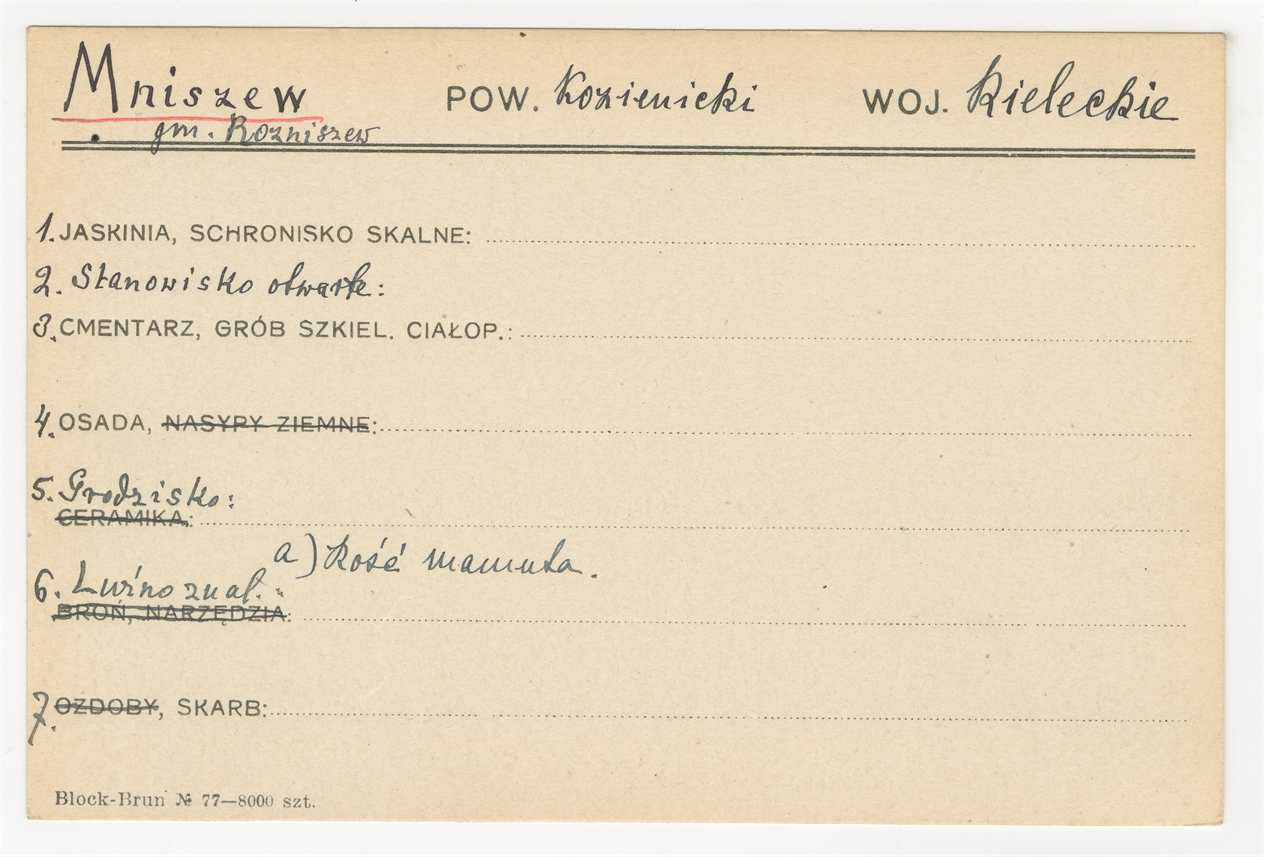 Mniszew POW. Kozienicki WOJ. Kieleckie
gm. Rozniszew
1. JASKINIA, SCHRONISKO SKALNE:
2. Stanowisko otwarte:
3. CMENTARZ, GRÓB SZKIEL. CIAŁOP.:
4. OSADA, NASYPY ZIEMNE:
5. Grodzisko:
CERAMIKA:
a) Kość mamuta.
6. Luźno znal.:
BROŃ, NARZĘDZIA:
7. OZDOBY, SKARB:
Block-Brun № 77—8000 szt.